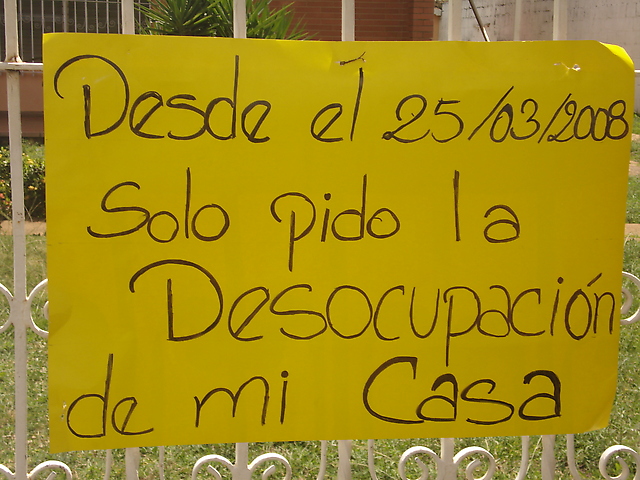 Desde el 25/03/2008
Solo pido la
Desocupación
de mi Casa